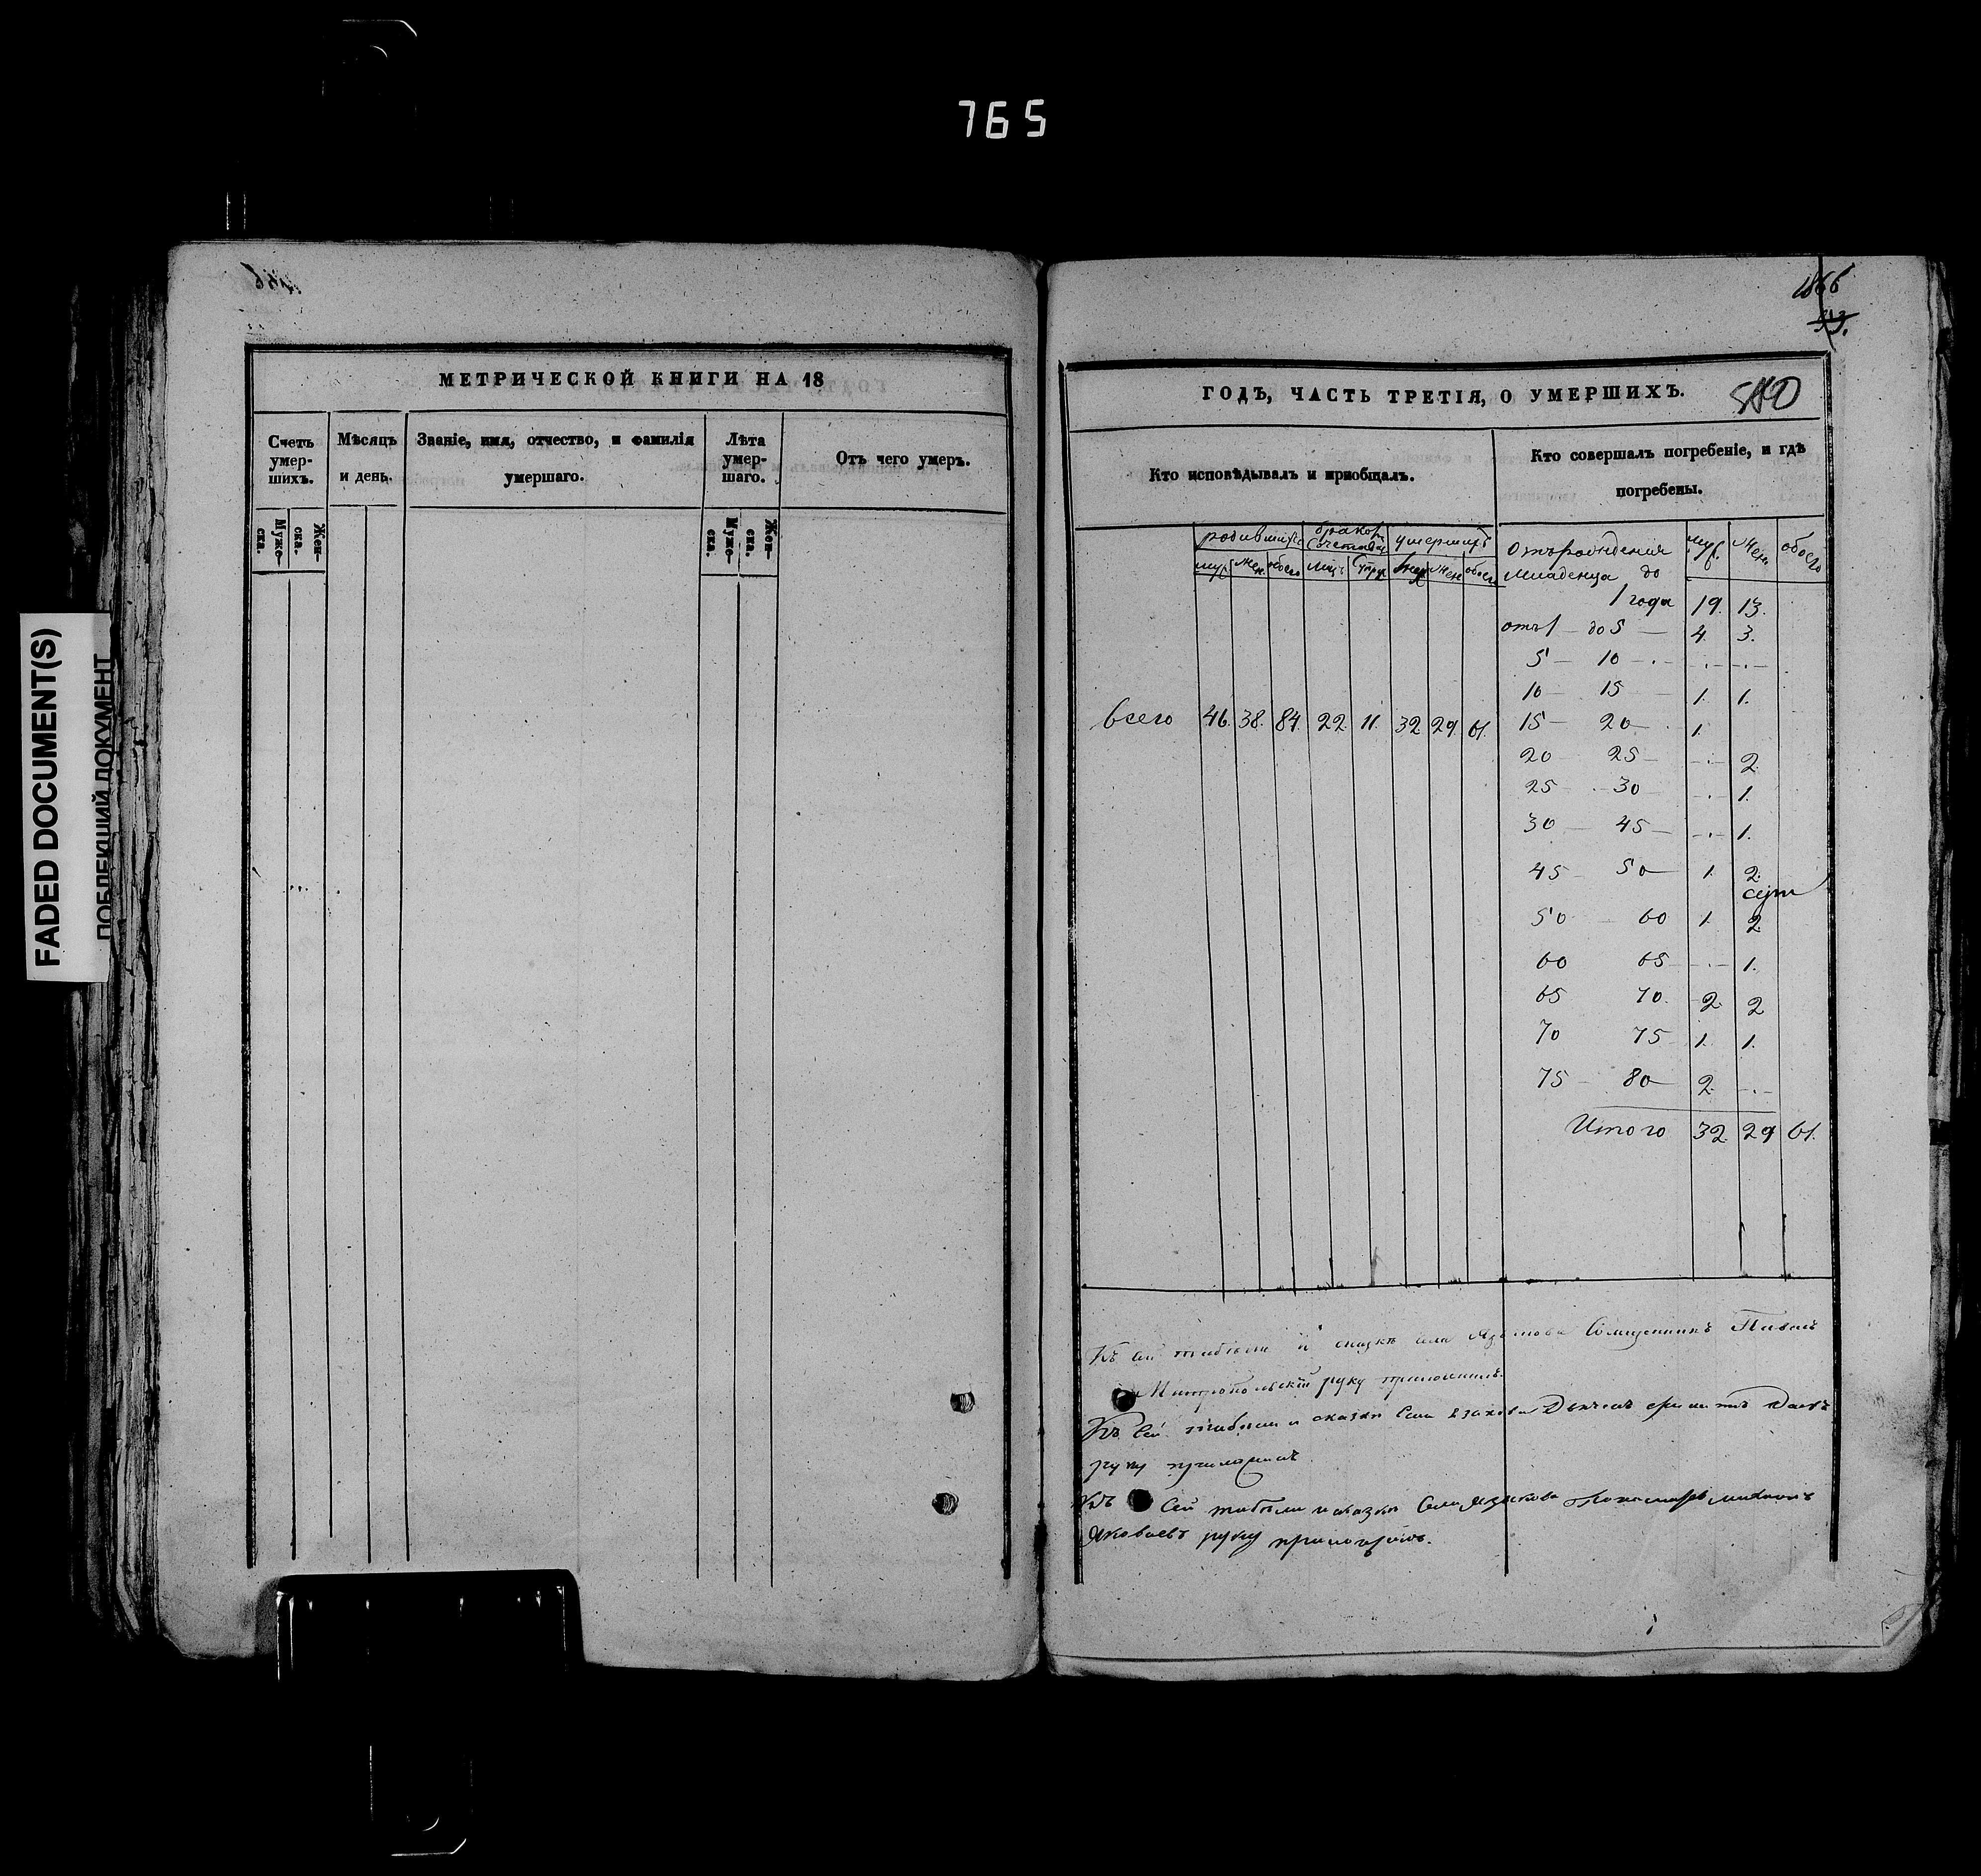 765
FADED DOCUMENT(S)
ПОБЛЕКШИЙ ДОКУМЕНТ
МЕТРИЧЕСКОЙ КНИГИ НА 18
Счетъ умер-шихъ.
Муже-ска.
Жен-ска.
Мѣсяцъ и день.
Званіе, имя, отчество, и фамилія умершаго.
Лѣта умер-шаго.
Муже-ска.
Жен-ска.
Отъ чего умеръ.
1866
ГОДЪ, ЧАСТЬ ТРЕТІЯ, О УМЕРШИХЪ.
Кто исповѣдывалъ и пріобщалъ.
Кто совершалъ погребеніе, и гдѣ погребены.
родившихся
умершихъ
муж. жен. обоего
жен обоего
Отъ рожденія муж. Жен. обоего
младенца до
1 года 19. 13.
отъ 1 — до 5 — 4. 3.
5 — 10 — . — . — . —
10 — 15 — 1. 1.
Всего 46. 38. 84. 22. 11. 32 29. 61.
15 — 20 — 1.
20 25 — — . — 2.
25 . — 30 — . — 1.
30 — 45 — — . — 1.
45 — 50 — 1. 2.
50 — 60 1. 2
60 65 — . — 1.
65 70. 2. 2
70 75 1. 1.
75 — 80 — 2. — . —
Итого 32. 29 61.
Къ сей
руку приложилъ.
Къ сей
руку приложилъ.
Къ Сей Села Языкова Пономарь
Яковлевъ руку приложилъ.